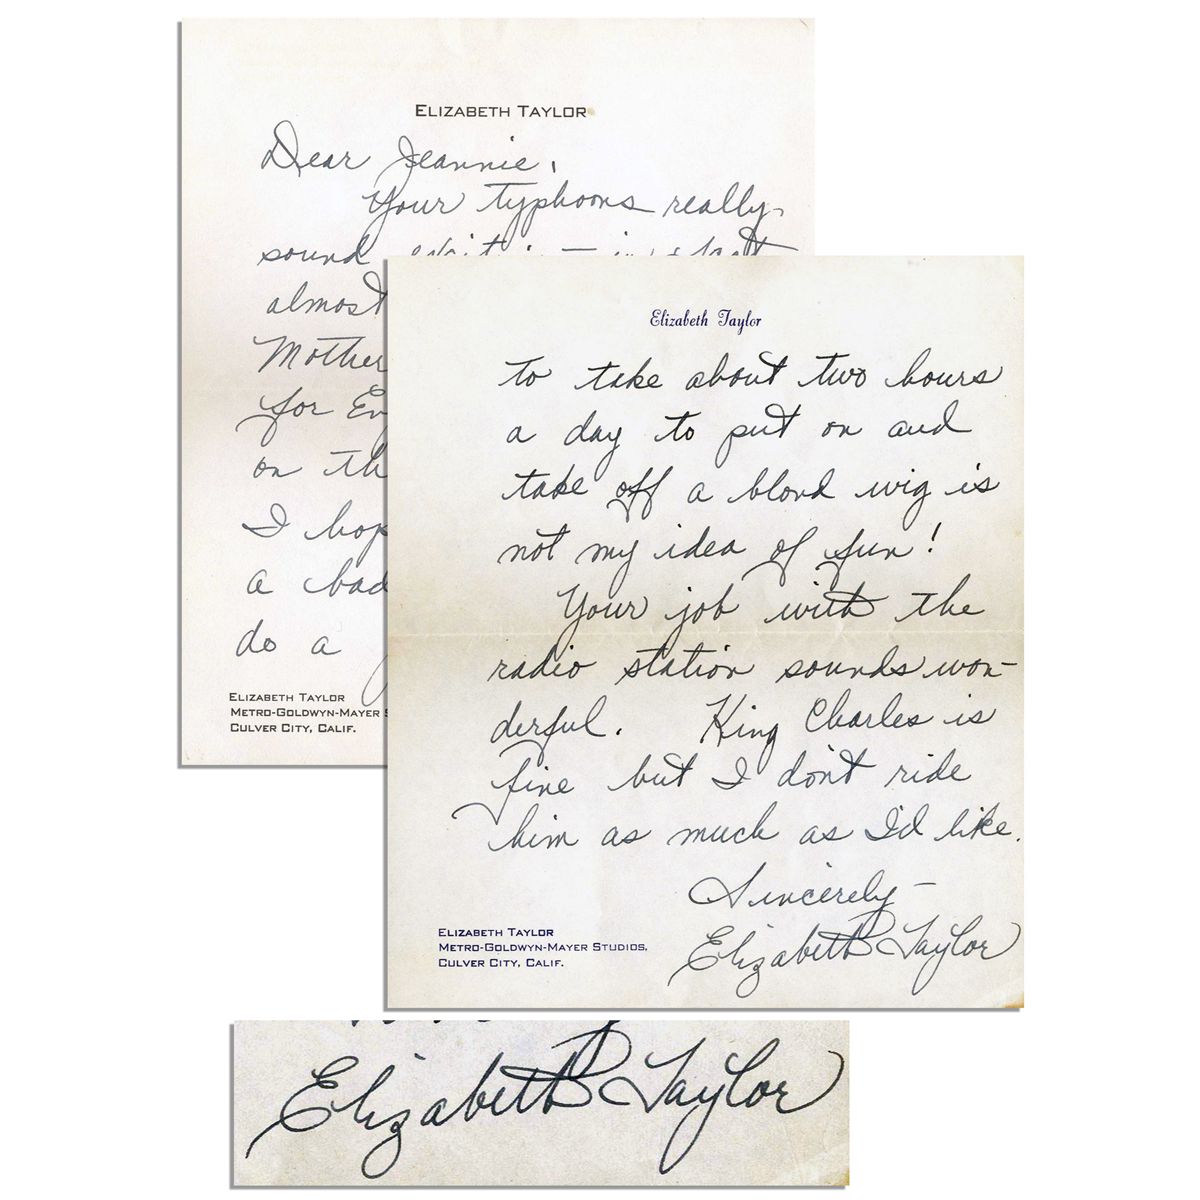 ELIZABETH TAYLOR
Dear Jeannie,
Your typhoons really
sound
almost
Mother
for
on
I
a bad
do a
ELIZABETH TAYLOR
METRO-GOLDWYN-MAYER
CULVER CITY, CALIF.
Elizabeth Taylor
to take about two hours
a day to put on and
take off a blond wig is
not my idea of fun!
Your job with the
radio station sounds won-
derful. King Charles is
fine but I don't ride
him as much as I'd like.
Sincerely –
Elizabeth Taylor
ELIZABETH TAYLOR
METRO-GOLDWYN-MAYER STUDIOS,
CULVER CITY, CALIF.
Elizabeth Taylor